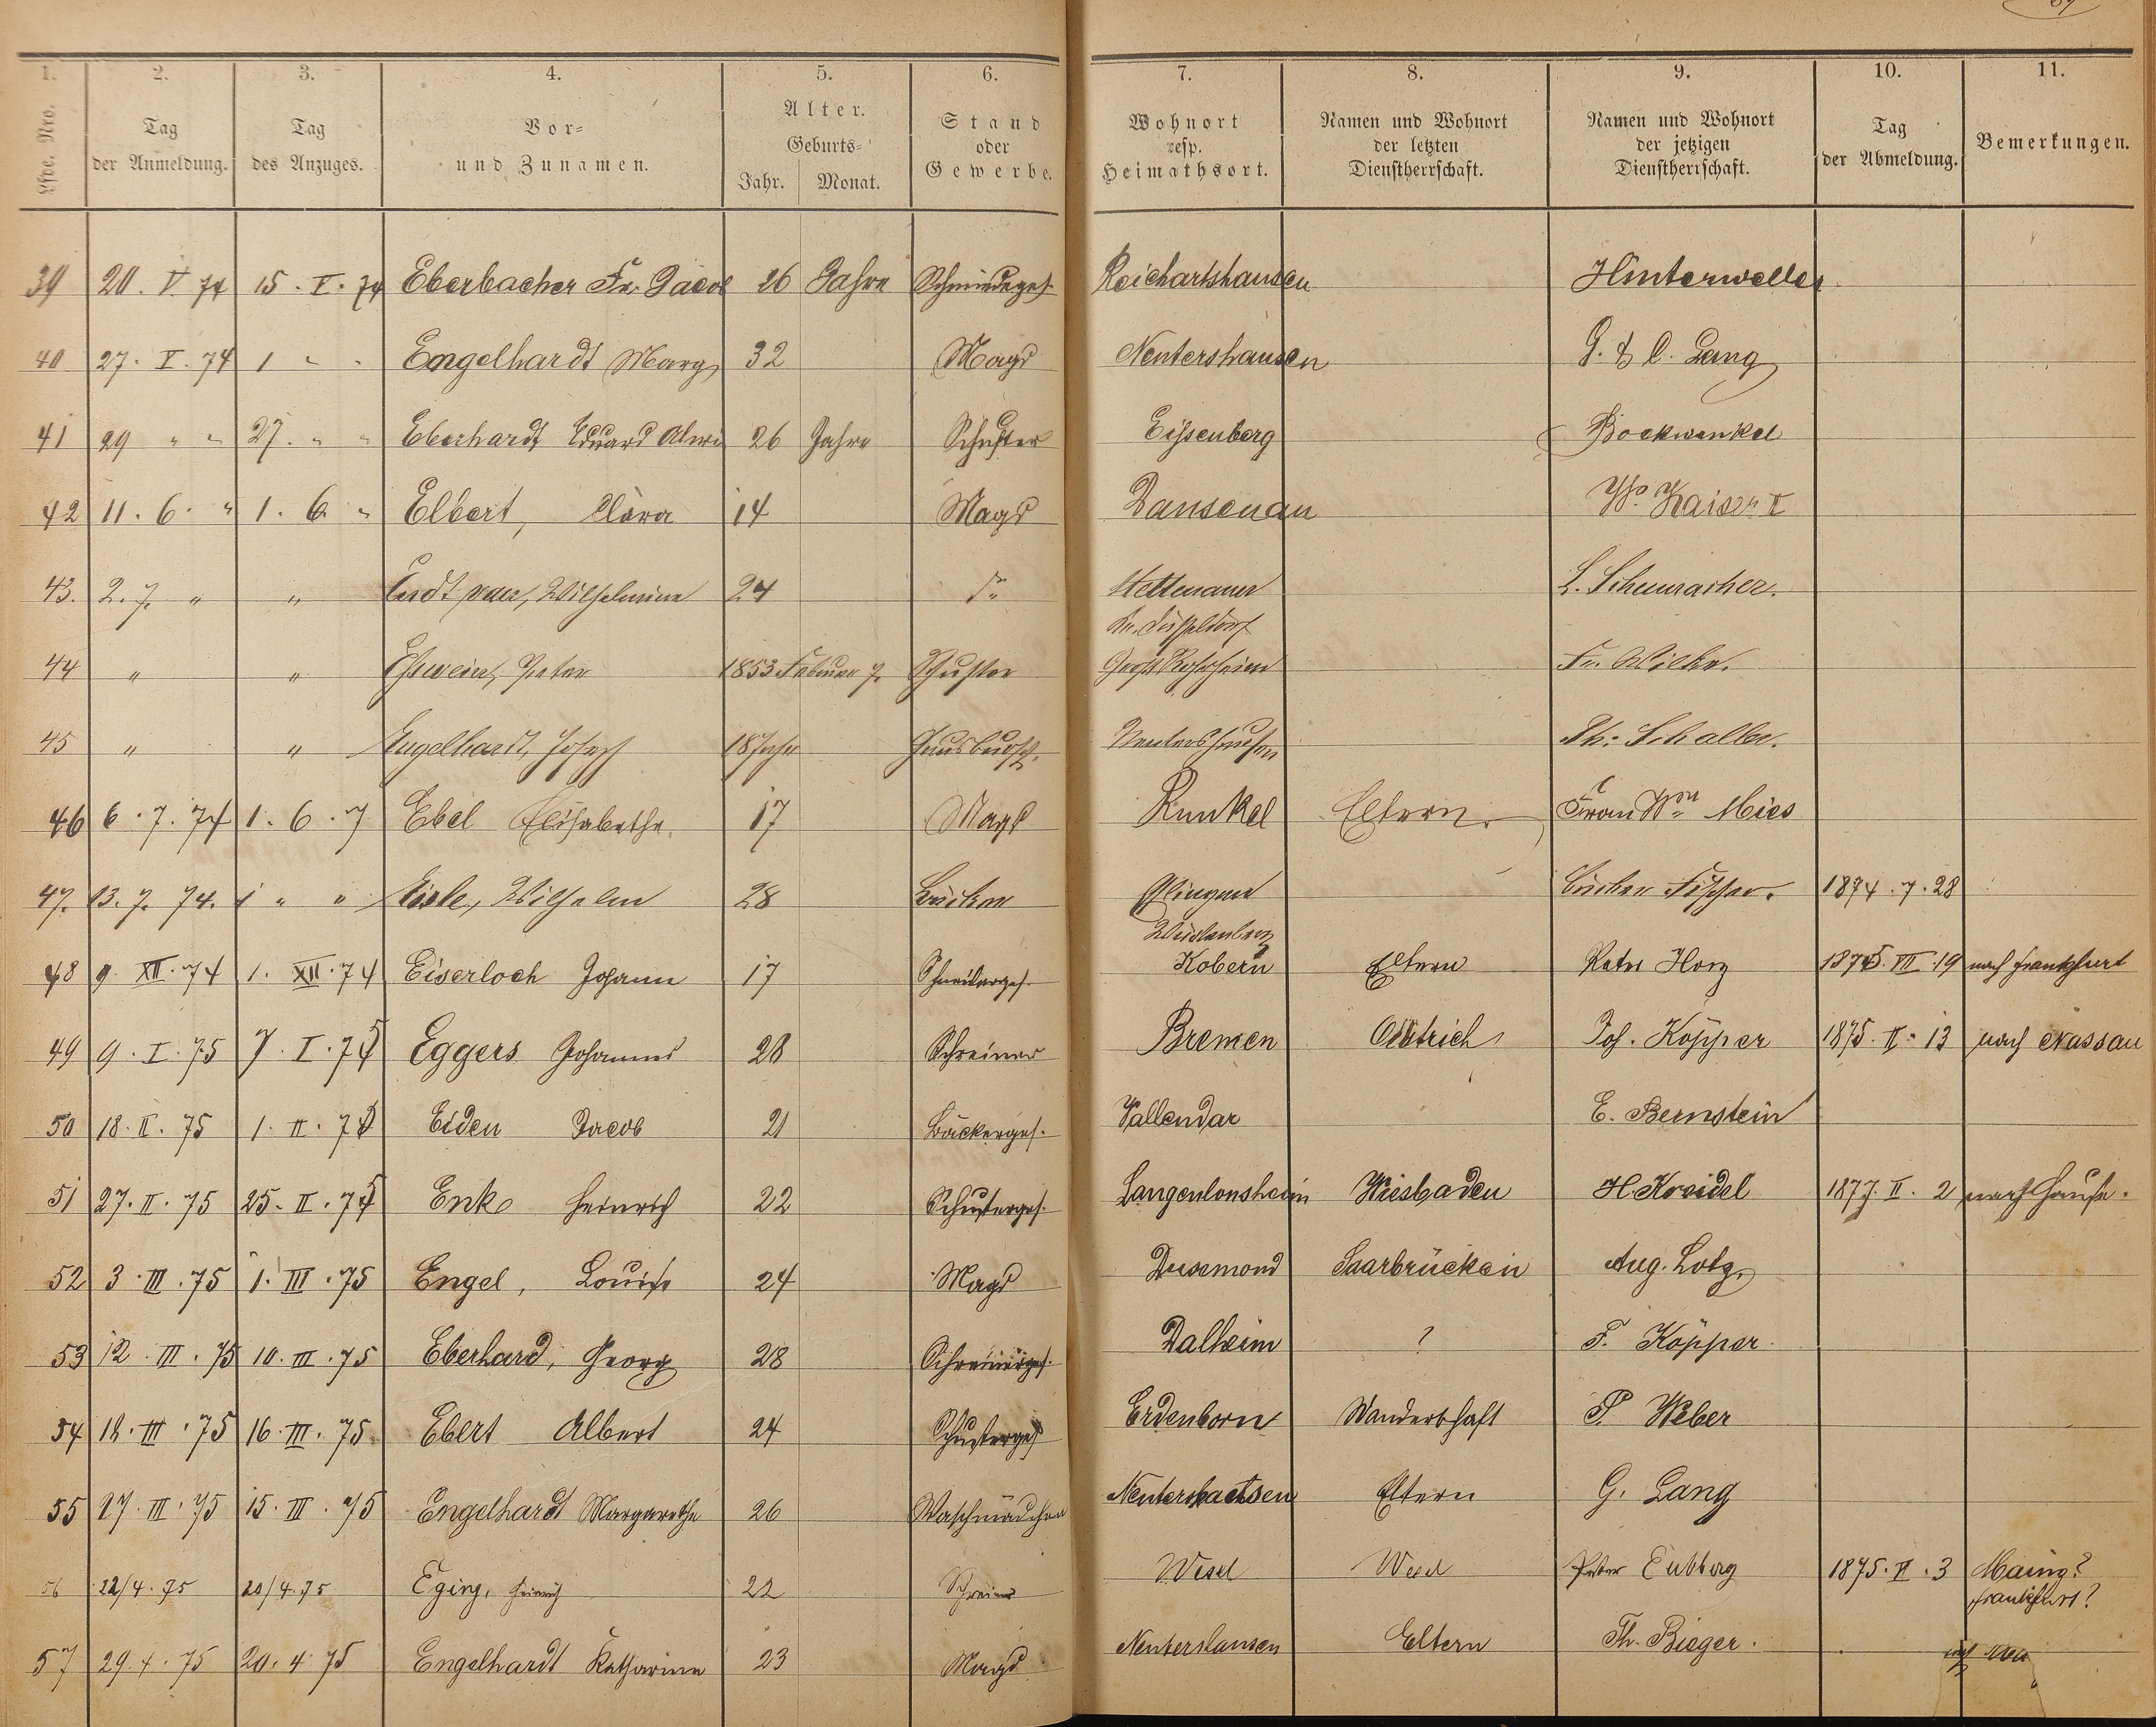 1. 2. 3. 4. 5. 6. 7. 8. 9. 10. 11.
Lfde. Nro. Tag der Anmeldung. Tag des Anzuges. Vor- und Zunamen. Alter. Geburts- Jahr. Monat. Stand oder Gewerbe. Wohnort resp. Heimathsort. Namen und Wohnort der letzten Dienstherrschaft. Namen und Wohnort der jetzigen Dienstherrschaft. Tag der Abmeldung. Bemerkungen.
39 20. V. 74 15. V. 74 Eberbacher Fr. Jacob 26 Jahre Schmiedeges. Reichartshausen Hinterweller
40 27. V. 74 1 " " Engelhardt Marg 32 Magd Nentershausen G. & C. Lang
41 29 " " 27. " " Eberhardt Eduard Alwi 26 Jahre Schuster Eisenberg Bockwinkel
42 11. 6. " 1. 6. " Elbert, Clara 14 Magd Dausenau W. Kaiser I
43. 2. 7. " " Wilhelmine 24 do Mettmann
Düsseldorf
44 " " Eßwein, Peter 1853 Februar 7. Schuster Groß Rohrheim Fr. Wilke.
45 " " Engelhardt, Joseph 18 Jahr Hausbursch. Nentershausen Ph. Schaller.
46 6. 7. 74 1. 6. 7 Ebel Elisabethe. 17 Magd Runkel Eltern. Frau Wwe Mies
47. 13. 7. 74. 1 " " Eisele, Wilhelm 28 Bäcker Bäcker Fischer. 1874. 7. 28
48 9. XII. 74 1. XII. 74 Eiserloch Johann 17 Schneiderges. Kobern Eltern Peter Horz 1875. VII. 19 nach Frankfurt
49 9. I. 75 7. I. 75 Eggers Johannes 28 Schreiner Bremen Oestrich Joh. Köpper 1875. II. 13 nach Nassau
50 18. II. 75 1. II. 75 Eiden Jacob 21 Bäckerges. Vallendar E. Bernstein
51 27. II. 75 25. II. 75 Enk Heinrich 22 Schusterges. Langenlonsheim Wiesbaden H. Kreidel 1877. II. 2 nach Hause.
52 3. III. 75 1. III. 75 Engel, Louise 24 Magd Dusemond Saarbrücken Aug. Lotz.
53 12. III. 75 10. III. 75 Eberhard, Georg 28 Schreinerges. Dalheim ? F. Köpper
54 18. III. 75 16. III. 75 Ebert Albert 24 Schusterges Erdenborn Wanderschaft P. Weber
55 17. III. 75 15. III. 75 Engelhardt Margarethe 26 Waschmädchen Nentershausen Eltern G. Lang
56 22/4. 75 20/4. 75 Eging, Heinrich 22 Schreiner Wesel Wesel Peter 1875. VI. 3 Mainz?
Frankfurt?
57 29. 4. 75 20. 4. 75 Engelhardt Katharine 23 Magd Nentershausen Eltern Th. Bieger.